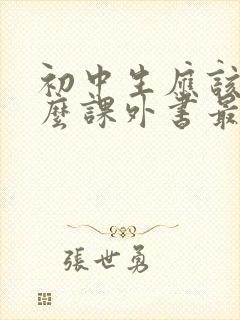 初中生應該
麼課外書最
張世勇